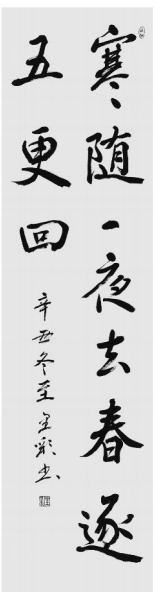 寒随一夜去春逐
五更回
辛丑冬至